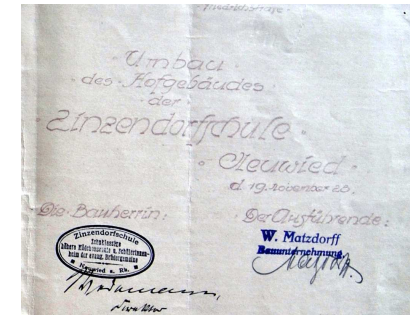 · Umbau ·
· des · Hofgebäudes ·
· der ·
· Zinzendorfschule ·
· Neuwied ·
d 19. November 20.
Die · Bauherrin :
Der Ausführende :
Zinzendorfschule
höhere Mädchenschule u. Schülerinnen-
heim der evang. Brüdergemeine
Neuwied a. Rh.
W. Matzdorff
Bauunternehmung
Direktor